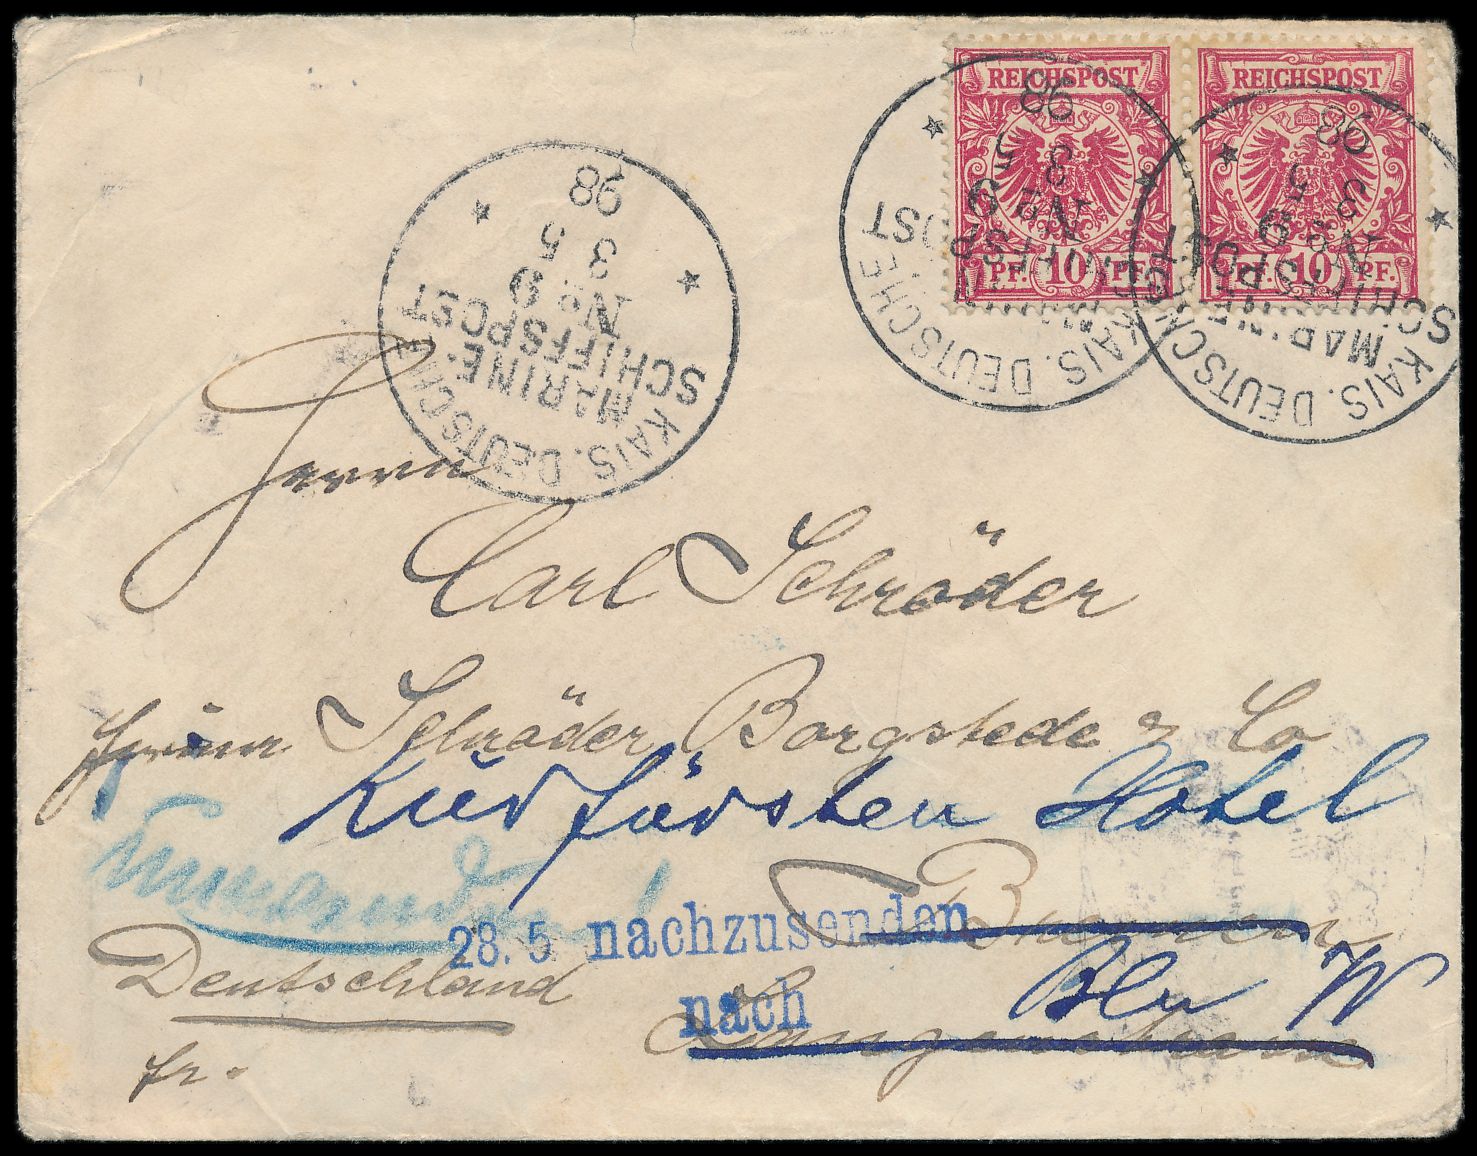 REICHSPOST
10
PF. PF.
REICHSPOST
10
PF. PF.
KAIS. DEUTSCHE
MARINE-
SCHIFFSPOST
No 9
3 5
98
KAIS. DEUTSCHE
MARINE-
SCHIFFSPOST
No 9
3 5
98
KAIS. DEUTSCHE
MARINE-
SCHIFFSPOST
No 9
3 5
98
Herrn
Carl Schröder
Schröder Borgstede & Co
Kurfürsten Hotel
28. 5 nachzusenden
Bremen
Deutschland
nach
Bln W
fr.